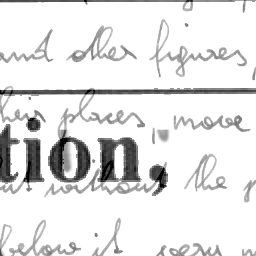 and other figures,
their places, move
tion,
but without the p
below it seem